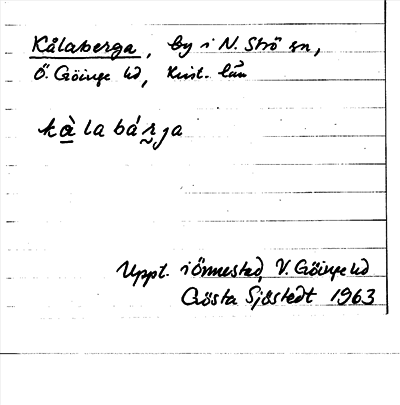 Kålaberga, by i N. Strö sn,
Ö. Göinge hd, Krist. län
kàlabárga
Uppt. i Önnestad, V. Göinge hd
Gösta Sjöstedt 1963